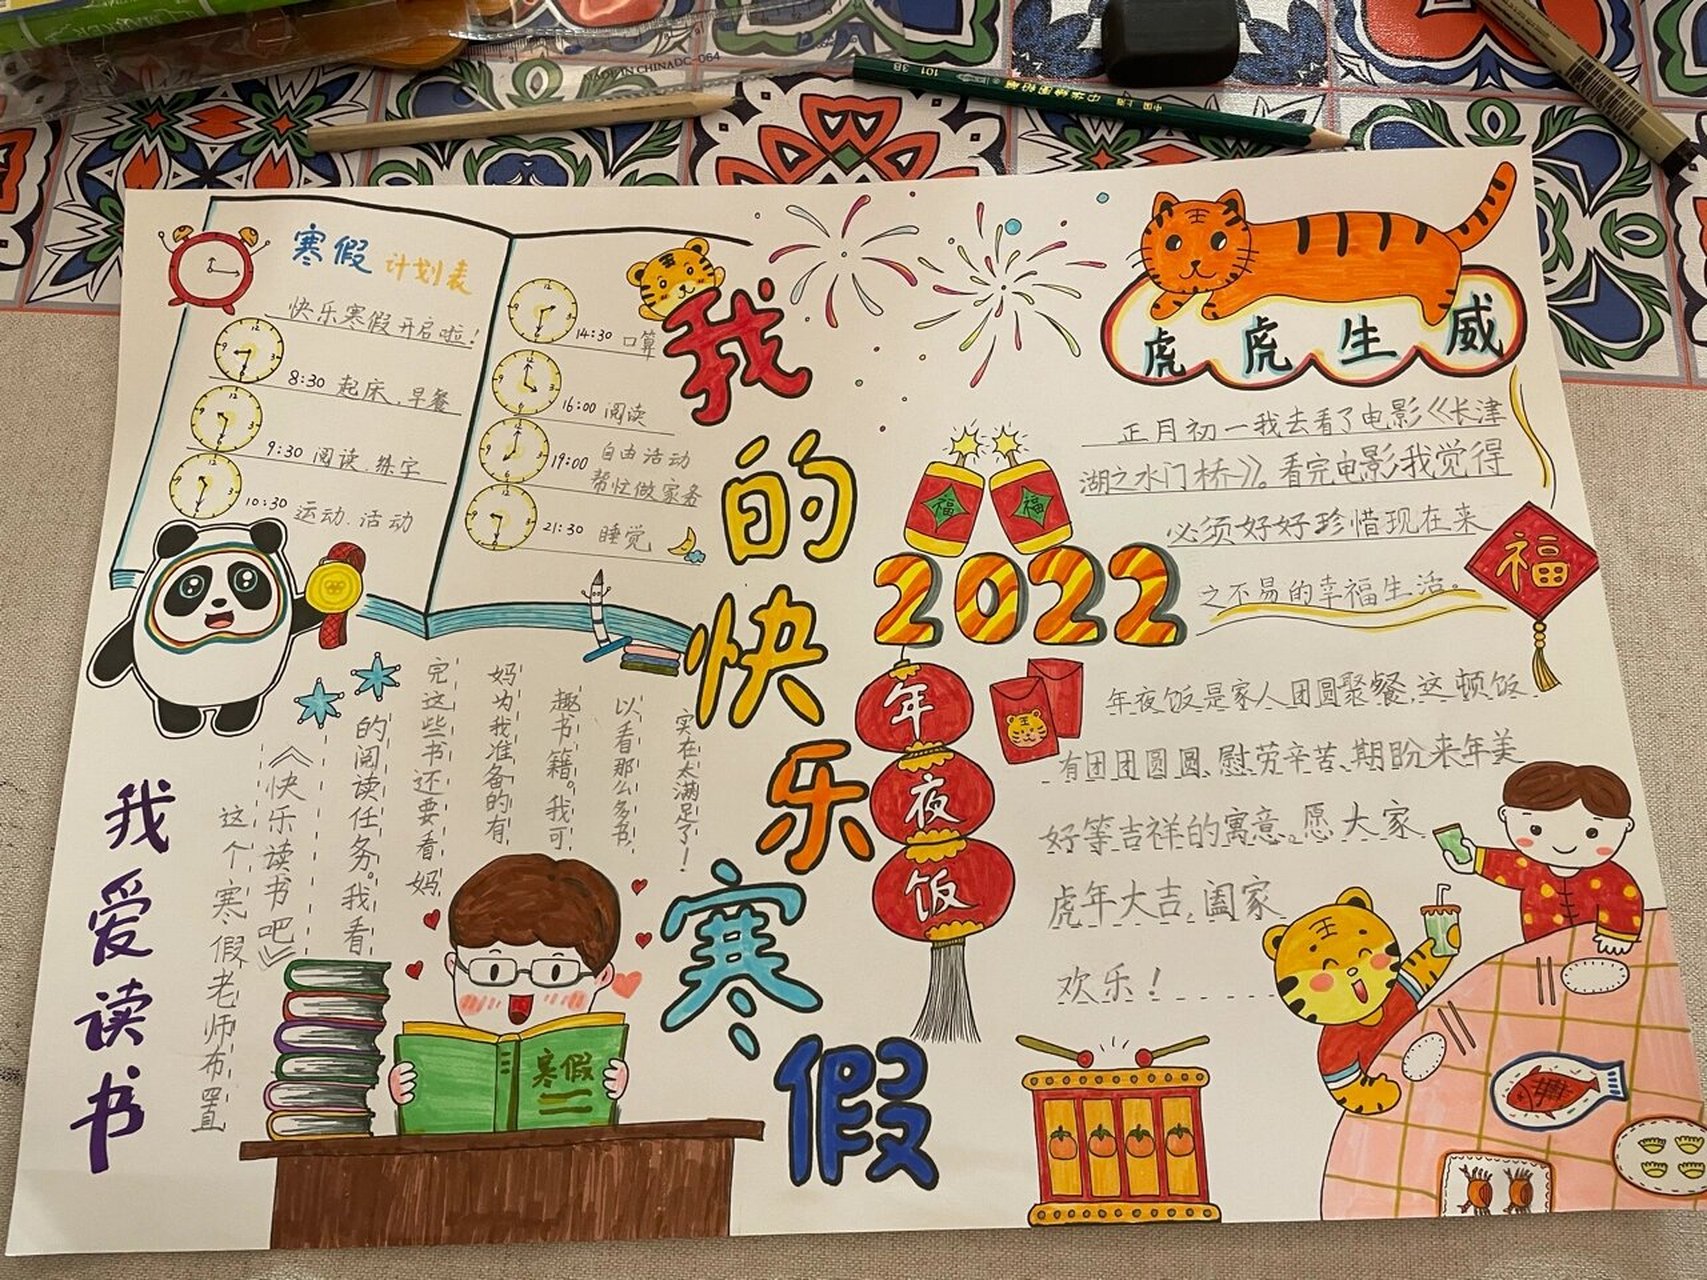 MADE IN CHINA DC-064
中国 上海 中华牌绘图铅笔 101 3B
寒假 计划表
快乐寒假开启啦！
8:30 起床、早餐
9:30 阅读、练字
10:30 运动、活动
14:30 口算
16:00 阅读
19:00 自由活动
帮忙做家务
21:30 睡觉
我的快乐寒假
虎虎生威
正月初一我去看了电影《长津
湖之水门桥》。看完电影我觉得
必须好好珍惜现在来
之不易的幸福生活。
福
福
福
2022
年夜饭
年夜饭是家人团圆聚餐，这顿饭
有团团圆圆、慰劳辛苦、期盼来年美
好等吉祥的寓意。愿大家
虎年大吉，阖家
欢乐！
我爱读书
这个寒假老师布置
《快乐读书吧》
的阅读任务。我看
完这些书还要看妈
妈为我准备的有
趣书籍。我可
以看那么多书，
实在太满足了！
寒假